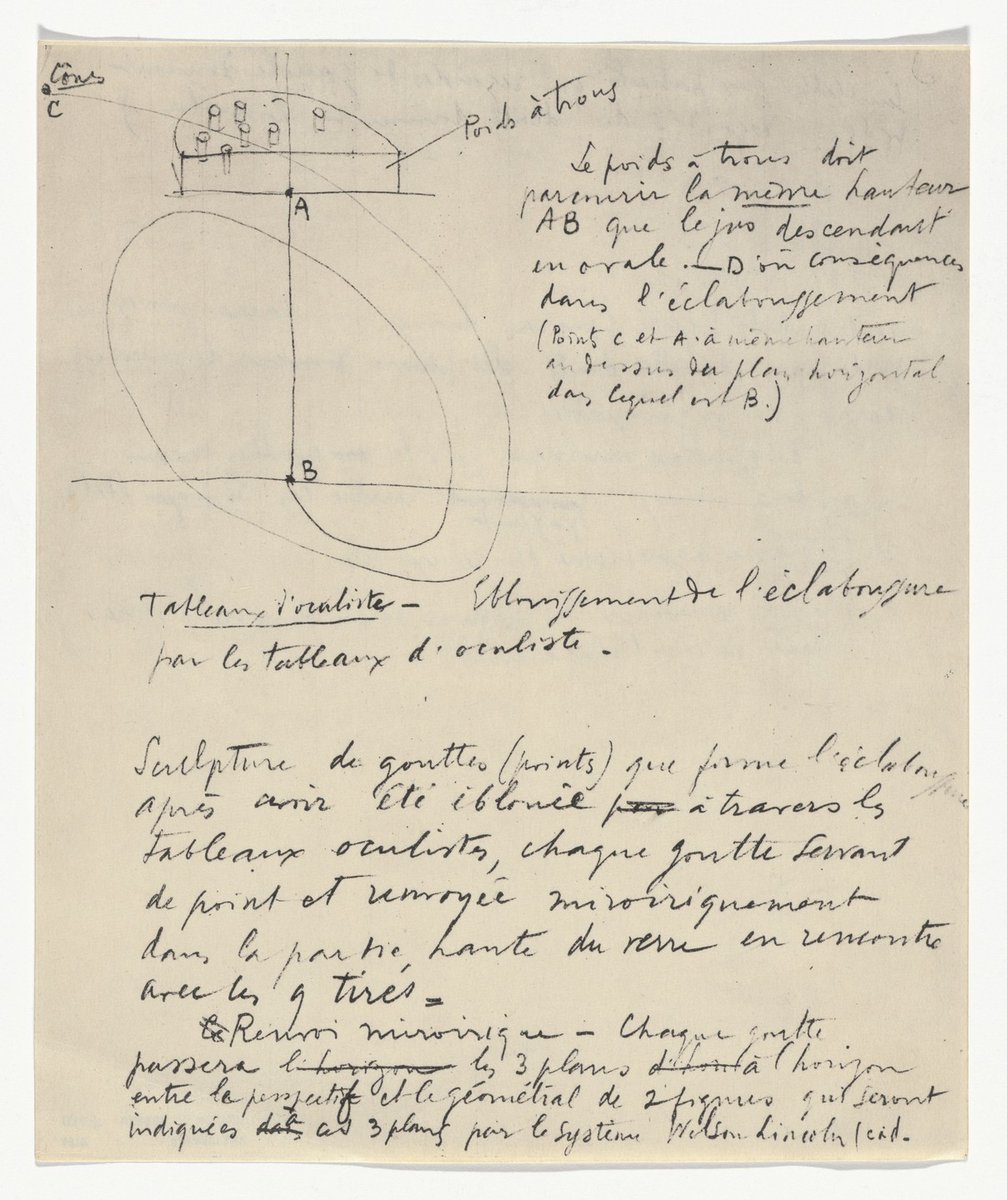 Cônes
C
Poids à trous
A
B
Le poids à trous doit
parcourir la même hauteur
AB que le jus descendant
en ovale. — D'où conséquences
dans l'éclaboussement
(Points C et A à même hauteur
au dessus du plan horizontal
dans lequel est B.)
Tableaux d'oculistes — Eblouissement de l'éclaboussure
par les tableaux d'oculiste.
Sculpture de gouttes (points) que forme l'éclaboussure
après avoir été éblouie par à travers les
tableaux oculistes, chaque goutte servant
de point et renvoyée miroiriquement
dans la partie haute du verre en rencontre
avec les 9 tirés =
Le Renvoi miroirique — Chaque goutte
passera l'horizon les 3 plans à l'horizon
entre le perspectif et le géométral de 2 figures qui seront
indiquées dans ces 3 plans par le système Wilson Lincoln (càd.